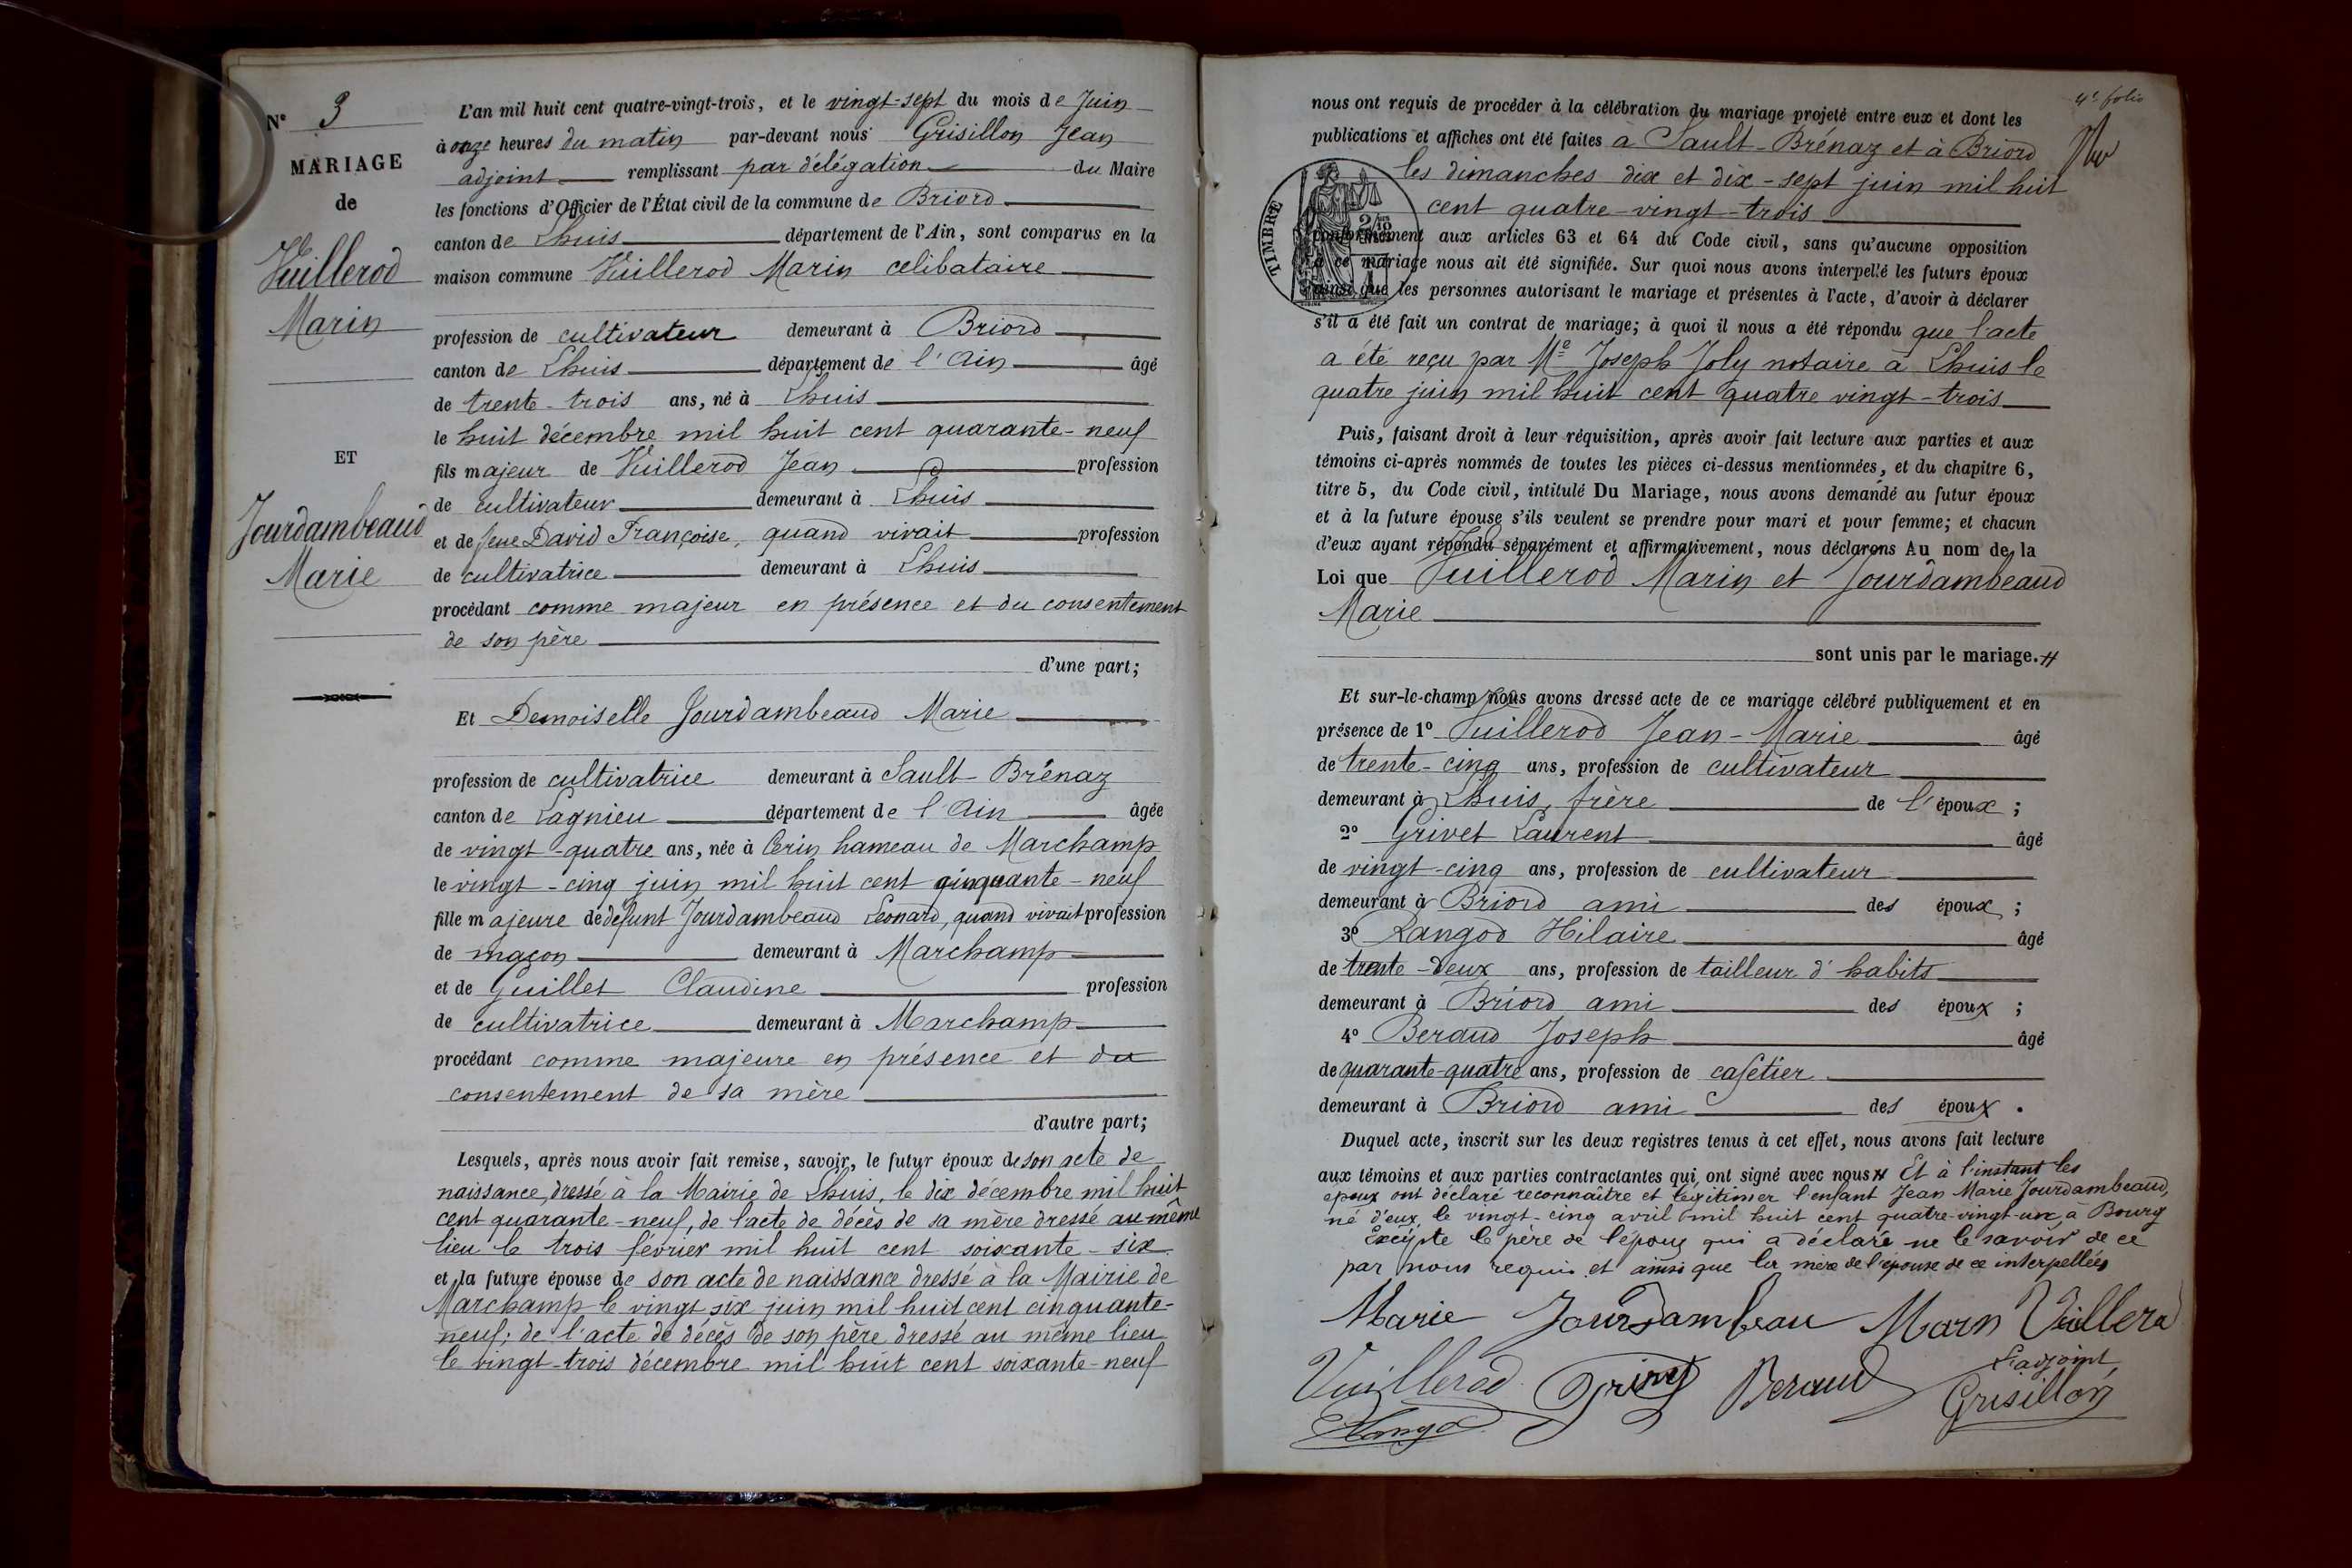 N° 3
MARIAGE
de
Vuillerod
Marin
ET
Jourdambeaud
Marie
L'an mil huit cent quatre-vingt-trois, et le vingt-sept du mois de Juin
à onze heures du matin par-devant nous Grisillon Jean
adjoint remplissant par délégation du Maire
les fonctions d'Officier de l'État civil de la commune de Briord
canton de Lhuis département de l'Ain, sont comparus en la
maison commune Vuillerod Marin celibataire
profession de cultivateur demeurant à Briord
canton de Lhuis département de l'Ain âgé
de trente-trois ans, né à Lhuis
le huit décembre mil huit cent quarante-neuf
fils majeur de Vuillerod Jean profession
de cultivateur demeurant à Lhuis
et de feue David Françoise, quand vivait profession
de cultivatrice demeurant à Lhuis
procédant comme majeur en présence et du consentement
de son père
d'une part;
Et Demoiselle Jourdambeaud Marie
profession de cultivatrice demeurant à Sault-Brénaz
canton de Lagnieu département de l'Ain âgée
de vingt-quatre ans, née à Cerin hameau de Marchamp
le vingt-cinq juin mil huit cent cinquante-neuf
fille majeure de défunt Jourdambeaud Leonard, quand vivait profession
de maçon demeurant à Marchamp
et de Guillet Claudine profession
de cultivatrice demeurant à Marchamp
procédant comme majeure en présence et du
consentement de sa mère
d'autre part;
Lesquels, après nous avoir fait remise, savoir, le futur époux de son acte de
naissance, dressé à la Mairie de Lhuis, le dix décembre mil huit
cent quarante-neuf, de l'acte de décès de sa mère dressé au même
lieu le trois février mil huit cent soixante-six
et la future épouse de son acte de naissance dressé à la Mairie de
Marchamp le vingt six juin mil huit cent cinquante-
neuf; de l'acte de décès de son père dressé au même lieu
le vingt-trois décembre mil huit cent soixante-neuf
4e folio
nous ont requis de procéder à la célébration du mariage projeté entre eux et dont les
publications et affiches ont été faites a Sault-Brénaz et à Briord
les dimanches dix et dix-sept juin mil huit
cent quatre-vingt-trois
TIMBRE
conformément aux articles 63 et 64 du Code civil, sans qu'aucune opposition
à ce mariage nous ait été signifiée. Sur quoi nous avons interpellé les futurs époux
ainsi que les personnes autorisant le mariage et présentes à l'acte, d'avoir à déclarer
s'il a été fait un contrat de mariage; à quoi il nous a été répondu que l'acte
a été reçu par Me Joseph Joly notaire à Lhuis le
quatre juin mil huit cent quatre vingt-trois
Puis, faisant droit à leur réquisition, après avoir fait lecture aux parties et aux
témoins ci-après nommés de toutes les pièces ci-dessus mentionnées, et du chapitre 6,
titre 5, du Code civil, intitulé Du Mariage, nous avons demandé au futur époux
et à la future épouse s'ils veulent se prendre pour mari et pour femme; et chacun
d'eux ayant répondu séparément et affirmativement, nous déclarons Au nom de la
Loi que Vuillerod Marin et Jourdambeaud
Marie
sont unis par le mariage. #
Et sur-le-champ nous avons dressé acte de ce mariage célébré publiquement et en
présence de 1° Vuillerod Jean-Marie âgé
de trente-cinq ans, profession de cultivateur
demeurant à Lhuis, frère de l'époux;
2° Grivet Laurent âgé
de vingt-cinq ans, profession de cultivateur
demeurant à Briord ami des époux;
3° Rangod Hilaire âgé
de trente-deux ans, profession de tailleur d'habits
demeurant à Briord ami des époux;
4° Beraud Joseph âgé
de quarante-quatre ans, profession de cafétier
demeurant à Briord ami des époux.
Duquel acte, inscrit sur les deux registres tenus à cet effet, nous avons fait lecture
aux témoins et aux parties contractantes qui ont signé avec nous # Et à l'instant les
epoux ont déclaré reconnaître et légitimer l'enfant Jean Marie Jourdambeaud,
né d'eux, le vingt-cinq avril mil huit cent quatre-vingt-un, à Bourg
Excepte le père de l'époux qui a déclaré ne le savoir de ce
par nous requis et ainsi que la mère de l'épouse de ce interpellées
Marie Jourdambeau Marin Vuillerod
L'adjoint
Vuillerod Grivet Beraud Grisillon
Rangod